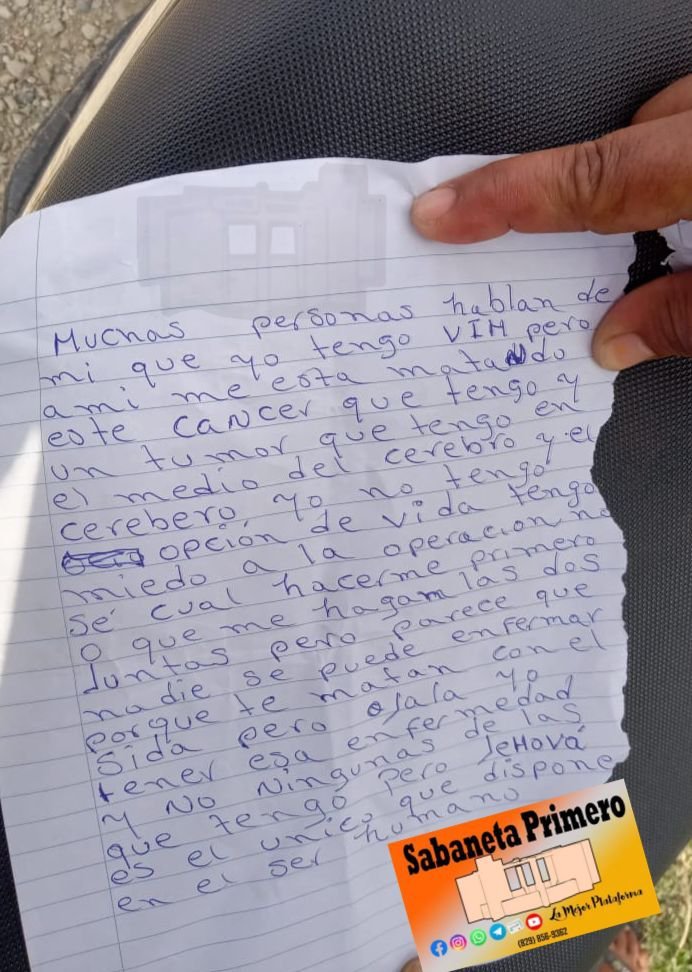 Muchas personas hablan de
mi que yo tengo VIH pero
ami me esta matando
este cancer que tengo y
un tumor que tengo en
el medio del cerebro y el
cerebero, yo no tengo
opción de vida tengo
miedo a la operacion no
sé cual hacerme primero
o que me hagam las dos
Juntas pero parece que
nadie se puede enfermar
porque te matan con el
sida pero ojala yo
tener esa enfermedad
y NO Ningunas de las
que tengo pero JeHová
es el unico que dispone
en el ser humano
Sabaneta Primero
La Mejor Plataforma
(829) 856-9362